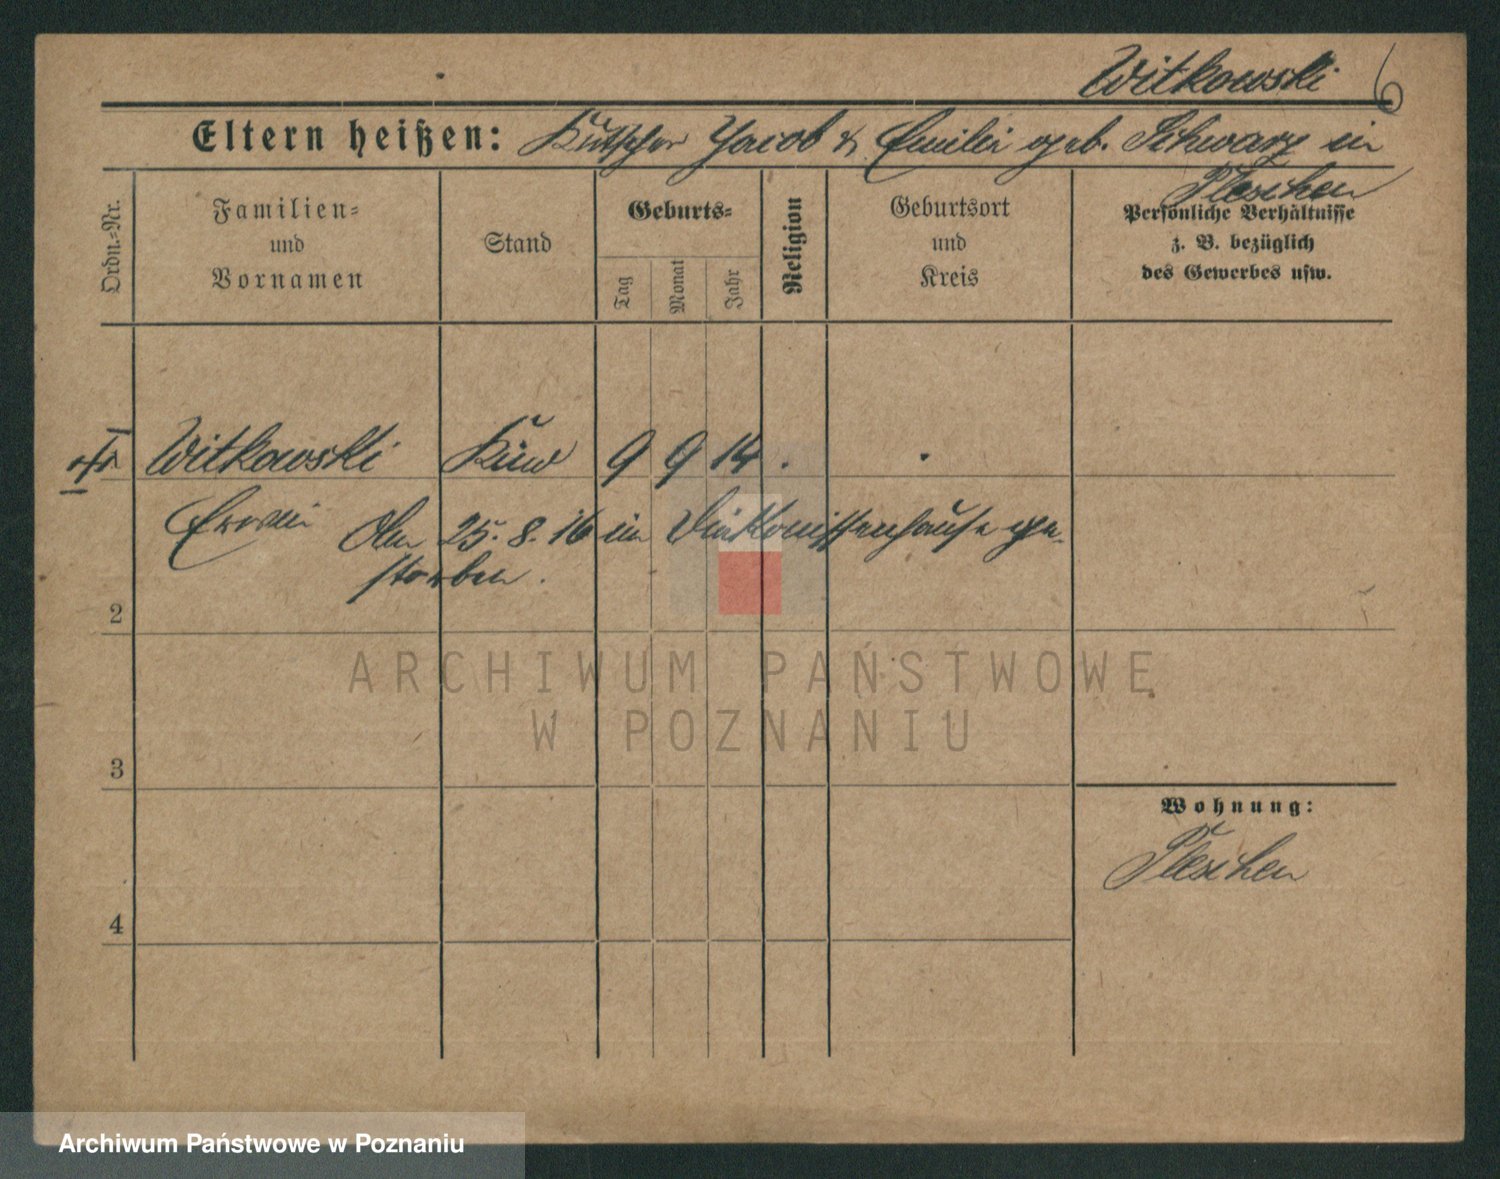 Witkowski 6
Eltern heißen: Kutscher Jacob & Emilie geb. Schwarz in
Pleschen
Ordn.-Nr.
Familien-
und
Vornamen
Stand
Geburts-
Tag
Monat
Jahr
Religion
Geburtsort
und
Kreis
Persönliche Verhältnisse
z. B. bezüglich
des Gewerbes usw.
Witkowski Kind 9 9 14 . .
Erwin Am 25. 8. 16 im Diakonissenhause ge-
storben.
2
3
4
Wohnung:
Pleschen
ARCHIWUM PAŃSTWOWE
W POZNANIU
Archiwum Państwowe w Poznaniu